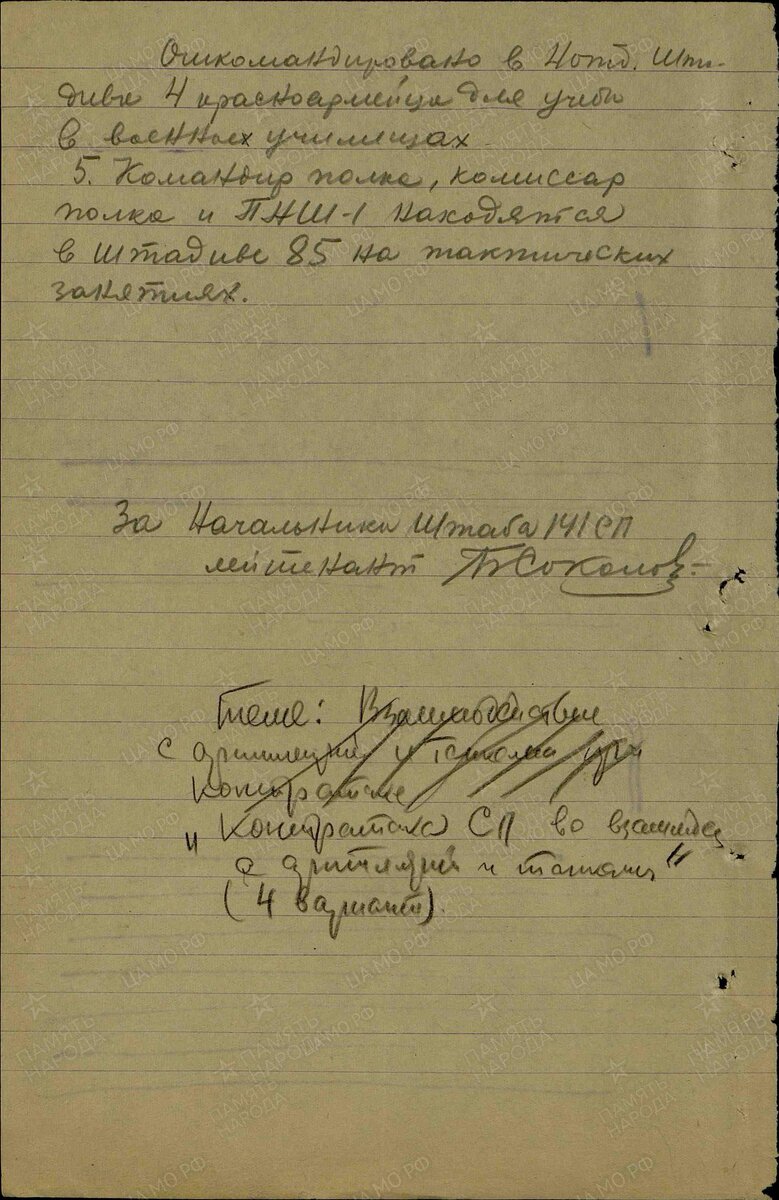 Откомандировано в 4 отд. Шта-
дива 4 красноармейца для учебы
в военных училищах
5. Командир полка, комиссар
полка и ПНШ-1 находятся
в штадиве 85 на тактических
занятиях.
За Начальника Штаба 141 СП
лейтенант Соколов
Тема: Взаимодействие
с артиллерией и танками при
контратаке
"Контратака СП во взаимод
с артиллерией и танками"
(4 вариант).